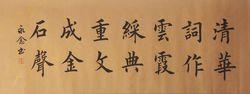 清華
詞作
雲霞
綵典
重文
成金
石聲